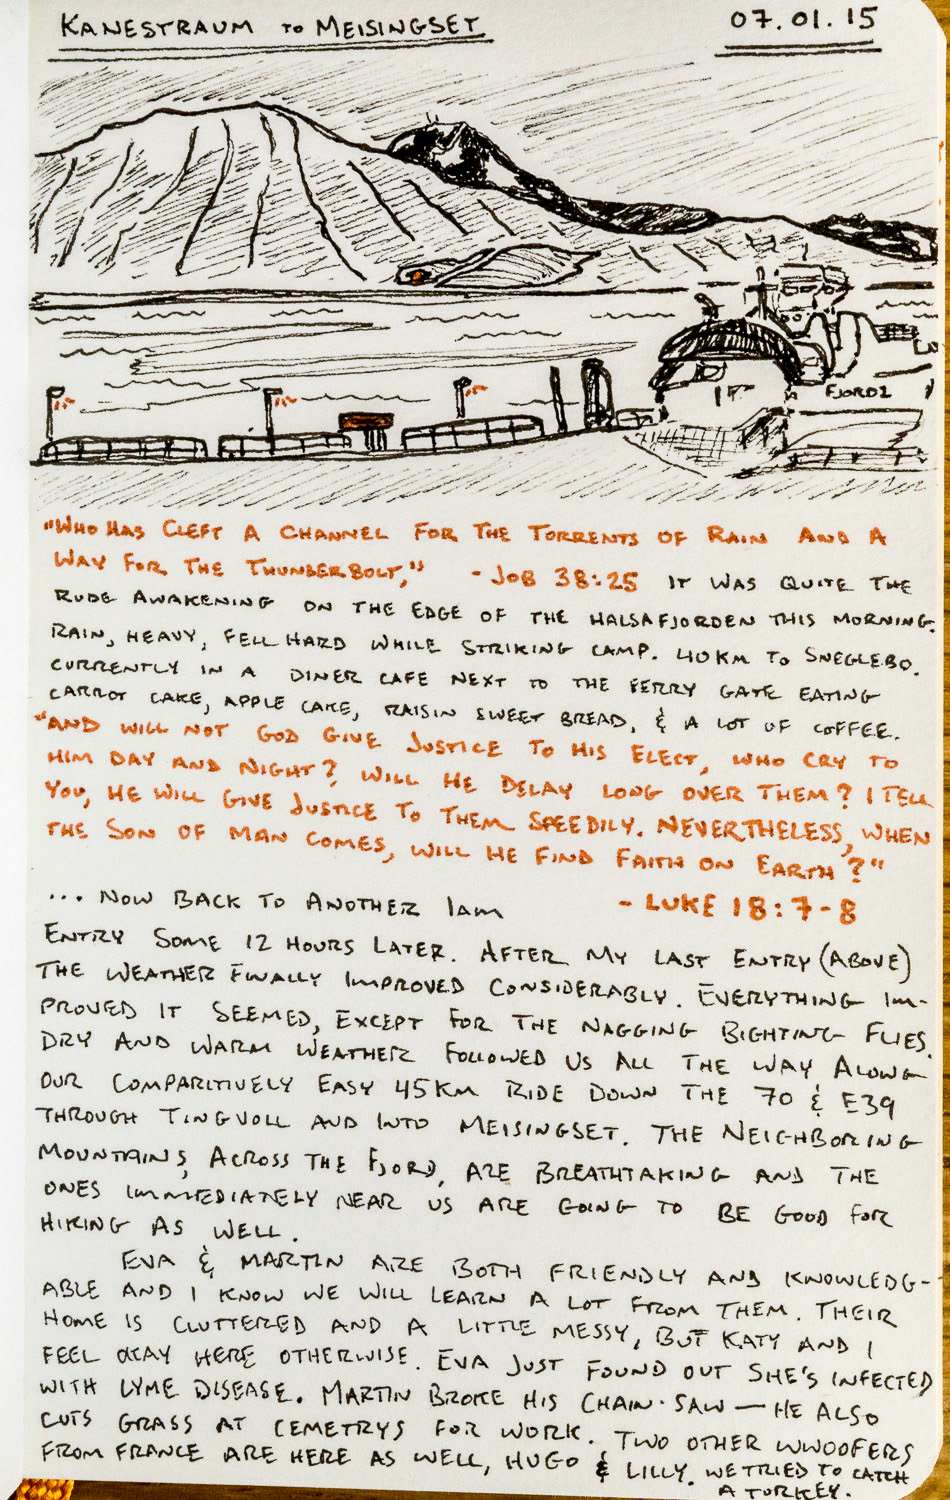 KANESTRAUM TO MEISINGSET
07.01.15
FJORD1
"WHO HAS CLEFT A CHANNEL FOR THE TORRENTS OF RAIN AND A
WAY FOR THE THUNDERBOLT," - JOB 38:25 IT WAS QUITE THE
RUDE AWAKENING ON THE EDGE OF THE HALSAFJORDEN THIS MORNING.
RAIN, HEAVY, FELL HARD WHILE STRIKING CAMP. 40KM TO SNEGLEBO.
CURRENTLY IN A DINER CAFE NEXT TO THE FERRY GATE EATING
CARROT CAKE, APPLE CAKE, RAISIN SWEET BREAD, & A LOT OF COFFEE.
"AND WILL NOT GOD GIVE JUSTICE TO HIS ELECT, WHO CRY TO
HIM DAY AND NIGHT? WILL HE DELAY LONG OVER THEM? I TELL
YOU, HE WILL GIVE JUSTICE TO THEM SPEEDILY. NEVERTHELESS, WHEN
THE SON OF MAN COMES, WILL HE FIND FAITH ON EARTH?"
- LUKE 18:7-8
... NOW BACK TO ANOTHER 1AM
ENTRY SOME 12 HOURS LATER. AFTER MY LAST ENTRY (ABOVE)
THE WEATHER FINALLY IMPROVED CONSIDERABLY. EVERYTHING IM-
PROVED IT SEEMED, EXCEPT FOR THE NAGGING BIGHTING FLIES.
DRY AND WARM WEATHER FOLLOWED US ALL THE WAY ALONG
OUR COMPARITIVELY EASY 45KM RIDE DOWN THE 70 & E39
THROUGH TINGVOLL AND INTO MEISINGSET. THE NEIGHBORING
MOUNTAINS, ACROSS THE FJORD, ARE BREATHTAKING AND THE
ONES IMMEDIATELY NEAR US ARE GOING TO BE GOOD FOR
HIKING AS WELL.
EVA & MARTIN ARE BOTH FRIENDLY AND KNOWLEDG-
ABLE AND I KNOW WE WILL LEARN A LOT FROM THEM. THEIR
HOME IS CLUTTERED AND A LITTLE MESSY, BUT KATY AND I
FEEL OKAY HERE OTHERWISE. EVA JUST FOUND OUT SHE'S INFECTED
WITH LYME DISEASE. MARTIN BROKE HIS CHAIN-SAW — HE ALSO
CUTS GRASS AT CEMETRYS FOR WORK. TWO OTHER WWOOFERS
FROM FRANCE ARE HERE AS WELL, HUGO & LILLY. WE TRIED TO CATCH
A TURKEY.